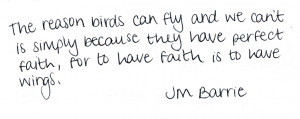 The reason birds can fly and we can't
is simply because they have perfect
faith, for to have faith is to have
wings.
JM Barrie